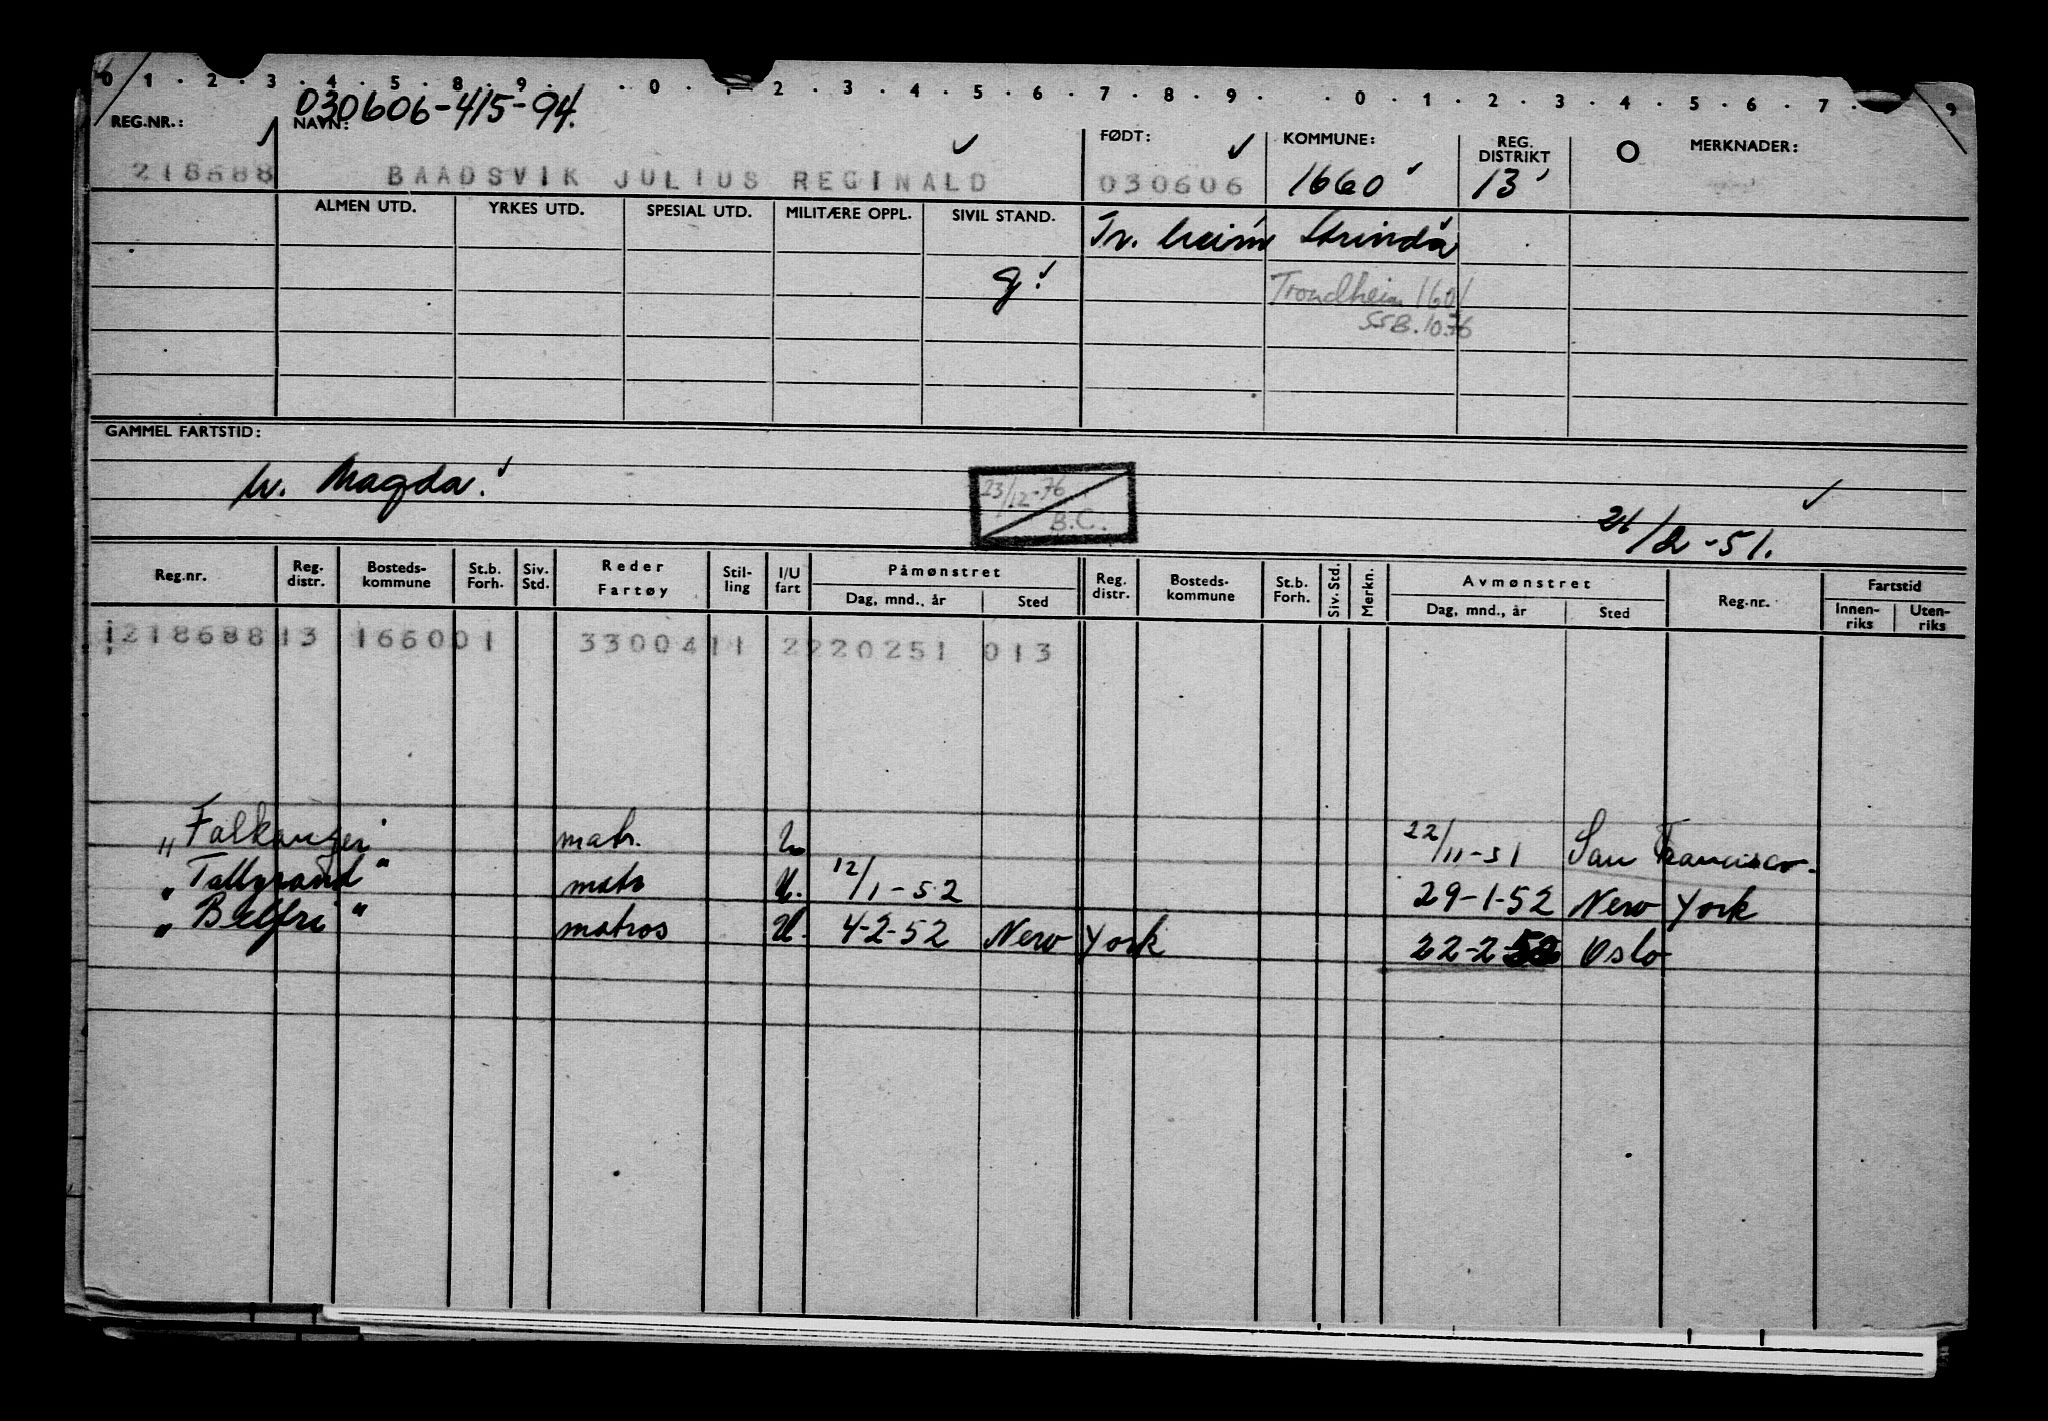 0 1 . 2 . 3 . 4 . 5 . 8 . 9 . . 0 . 1 2 . 3 . 4 . 5 . 6 . 7 . 8 . 9 . . 0 . 1 . 2 . 3 . 4 . 5 . 6 . 7 . 9
030606-415-94.
REG.NR.: NAVN: FØDT: KOMMUNE: REG. DISTRIKT O MERKNADER:
218688 BAADSVIK JULIUS REGINALD 030606 1660 13
ALMEN UTD. YRKES UTD. SPESIAL UTD. MILITÆRE OPPL. SIVIL STAND. Tr. heim Strinda
g. Trondheim 1601
SSB. 10.76
GAMMEL FARTSTID:
h. Magda. 23/12-76
B.C.
21/2-51.
Reg.nr. Reg. distr. Bosteds-kommune St.b. Forh. Siv. Std. Reder Fartøy Stil-ling I/U fart Påmønstret Dag, mnd., år Sted Reg. distr. Bosteds-kommune St.b. Forh. Siv. Std. Merkn. Avmønstret Dag, mnd., år Sted Reg.nr. Fartstid Innen-riks Uten-riks
121868813 166001 3300411 2220251 013
"Falkanger" matr. U 22/11-51 San Francisco.
"Tallyrand" matr U. 12/1-52 29-1-52 New York
"Belfri" matros U. 4-2-52 New York 22-2-52 Oslo